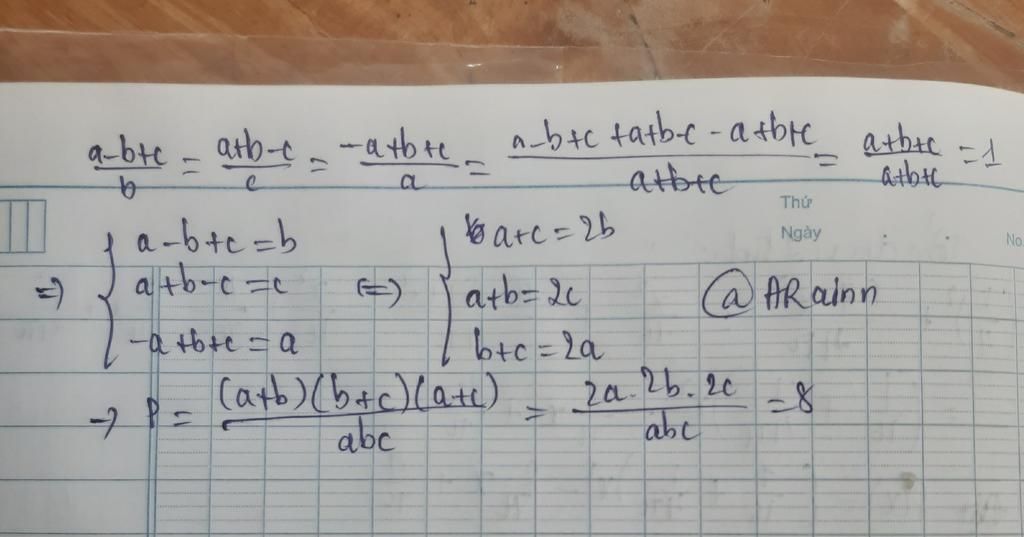 a-b+c/b = a+b-c/c = -a+b+c/a = a-b+c+a+b-c-a+b+c/a+b+c = a+b+c/a+b+c = 1
Thứ
Ngày : .
No.
=> { a-b+c=b <=> { a+c=2b
a+b-c=c a+b=2c @ARainn
-a+b+c=a b+c=2a
-> P = (a+b)(b+c)(a+c)/abc = 2a.2b.2c/abc = 8